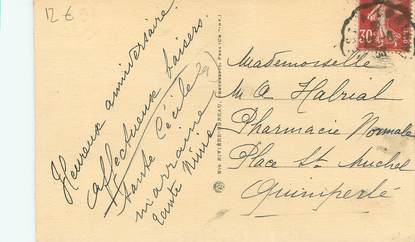 12 €
Heureux anniversaire
affectueux baisers
tante Cécile
marraine
tante Nini
Mademoiselle
M A Habrial
Pharmacie Normale
Place St Michel
Quimperlé
30